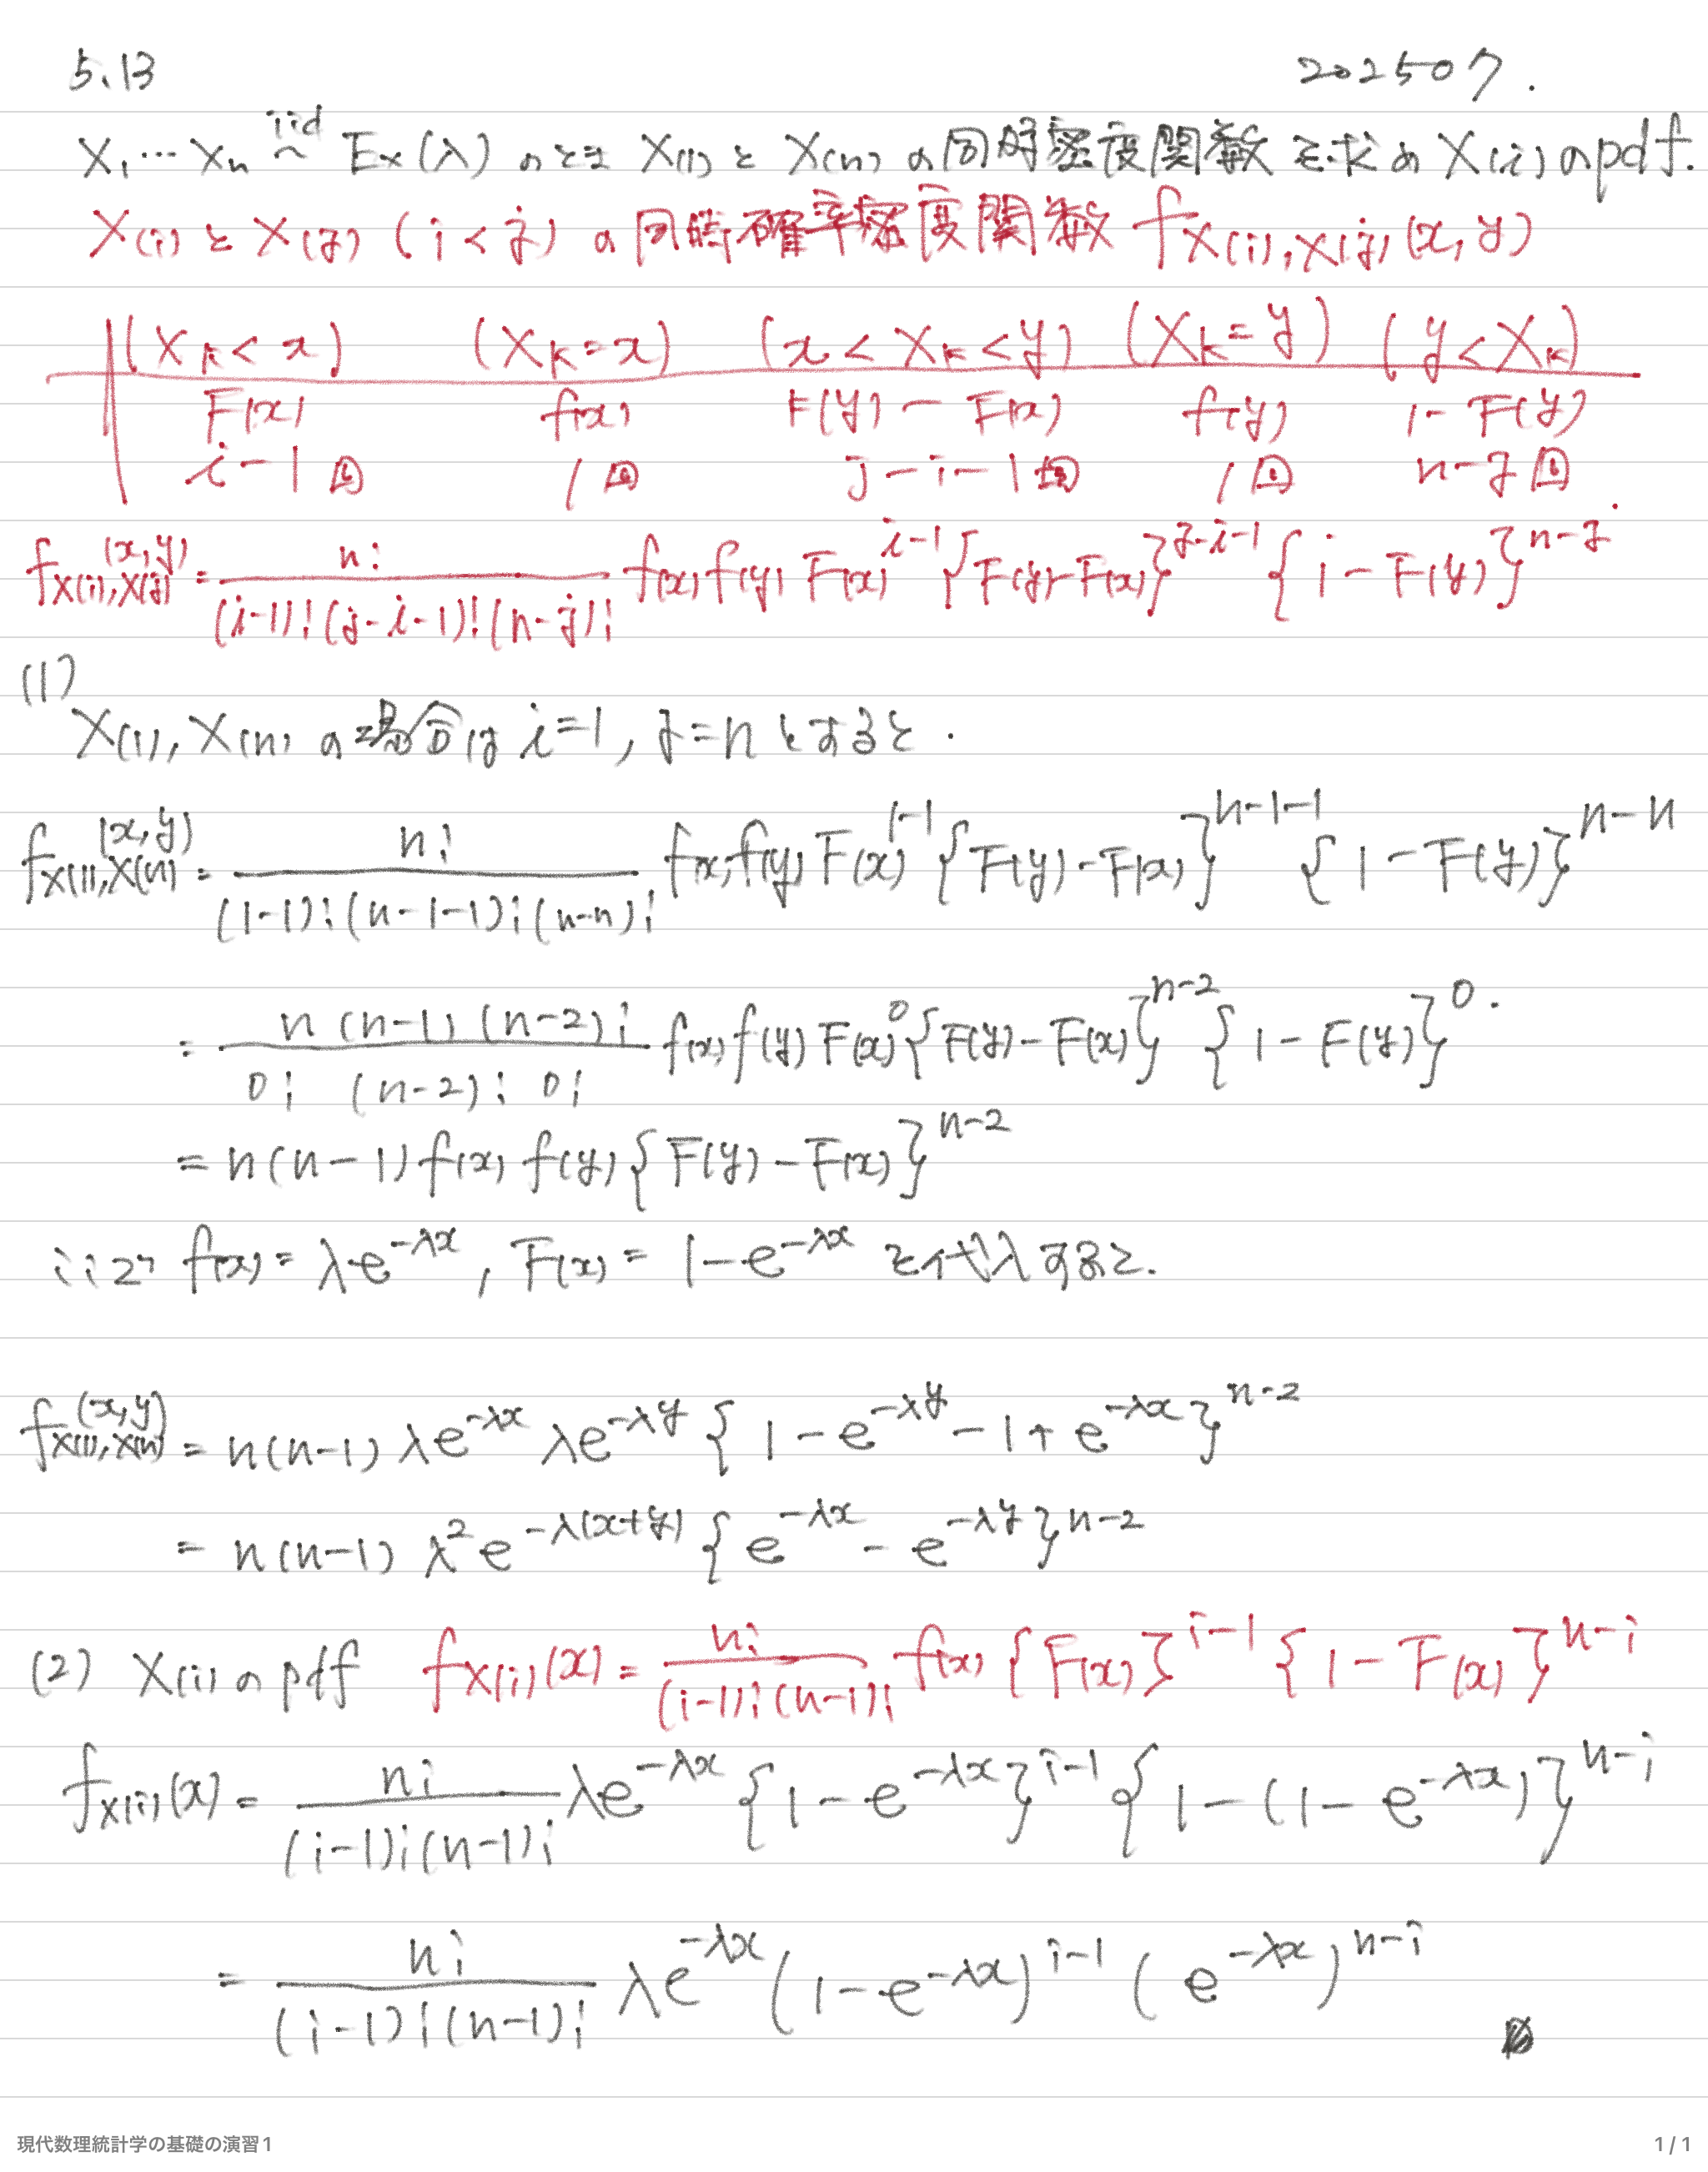 5.13 202507.
X₁…Xₙ iid〜 Ex(λ) のとき X(1) と X(n) の同時密度関数を求め X(i) の pdf.
X(i) と X(j) (i<j) の同時確率密度関数 f_{X(i),X(j)}(x,y)
(X_k<x) (X_k=x) (x<X_k<y) (X_k=y) (y<X_k)
F(x) f(x) F(y)-F(x) f(y) 1-F(y)
i-1回 1回 j-i-1回 1回 n-j回
f_{X(i),X(j)}(x,y) = n!/((i-1)!(j-i-1)!(n-j)!) f(x)f(y)F(x)^{i-1}{F(y)-F(x)}^{j-i-1}{1-F(y)}^{n-j}.
(1)
X(1),X(n) の場合は i=1, j=n とすると.
f_{X(1),X(n)}(x,y) = n!/((1-1)!(n-1-1)!(n-n)!) f(x)f(y)F(x)^{1-1}{F(y)-F(x)}^{n-1-1}{1-F(y)}^{n-n}
= n(n-1)(n-2)!/(0!(n-2)!0!) f(x)f(y)F(x)^0{F(y)-F(x)}^{n-2}{1-F(y)}^0.
= n(n-1)f(x)f(y){F(y)-F(x)}^{n-2}
ここで f(x)=λe^{-λx}, F(x)=1-e^{-λx} を代入すると.
f_{X(1),X(n)}(x,y) = n(n-1)λe^{-λx}λe^{-λy}{1-e^{-λy}-1+e^{-λx}}^{n-2}
= n(n-1)λ²e^{-λ(x+y)}{e^{-λx}-e^{-λy}}^{n-2}
(2) X(i) の pdf f_{X(i)}(x) = n!/((i-1)!(n-1)!) f(x){F(x)}^{i-1}{1-F(x)}^{n-i}
f_{X(i)}(x) = n!/((i-1)!(n-1)!) λe^{-λx}{1-e^{-λx}}^{i-1}{1-(1-e^{-λx})}^{n-i}
= n!/((i-1)!(n-1)!) λe^{-λx}(1-e^{-λx})^{i-1}(e^{-λx})^{n-i}
現代数理統計学の基礎の演習1 1/1